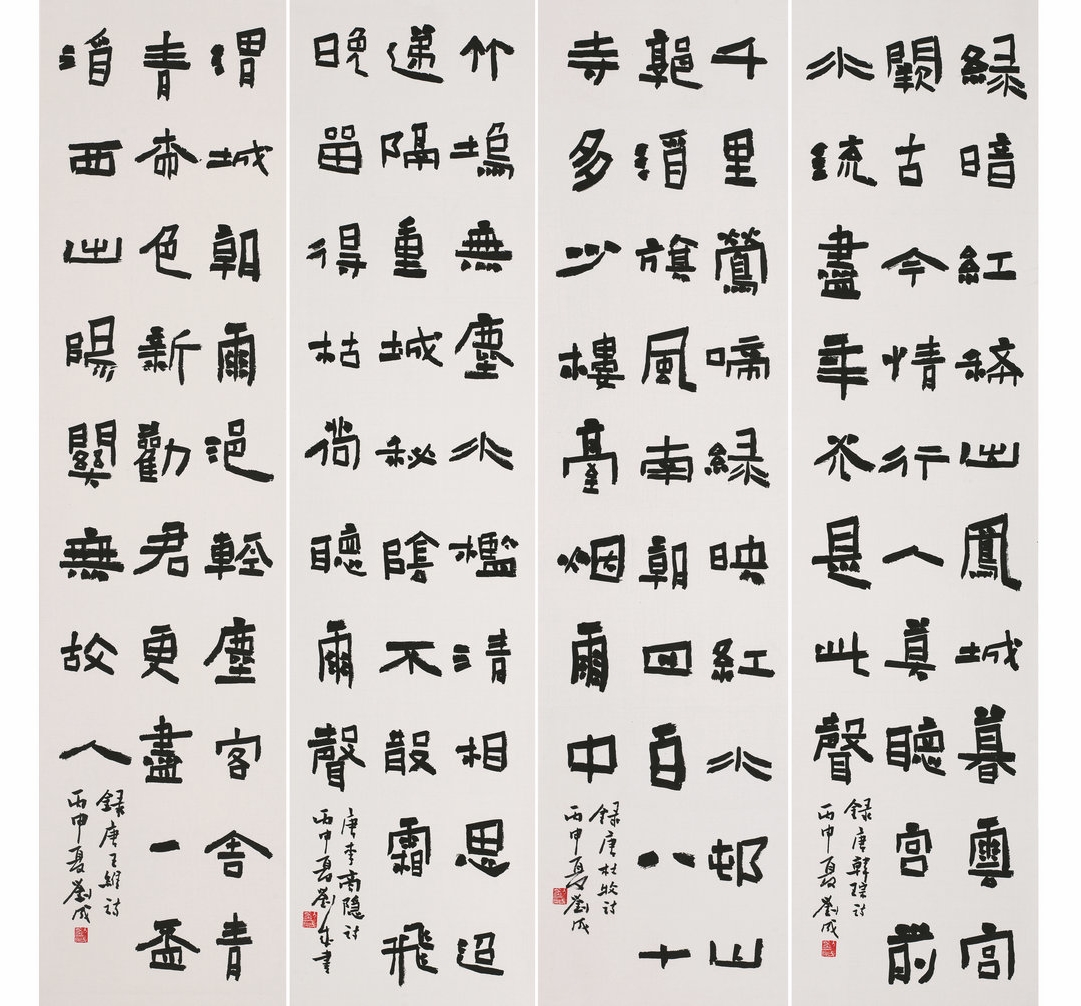 緑暗紅稀出鳳城暮雲宮
闕古今情行人莫聽宮前
水流盡年光是此聲
録唐韓琮詩
丙申夏劉成
千里鶯啼緑映紅水邨山
郭酒旗風南朝四百八十
寺多少樓臺烟雨中
録唐杜牧詩
丙申夏劉成
竹塢無塵水檻清相思迢
遞隔重城秋陰不散霜飛
晚留得枯荷聽雨聲
唐李商隐詩
丙申夏劉成書
渭城朝雨浥輕塵客舍青
青柳色新勸君更盡一盃
酒西出陽關無故人
録唐王維詩
丙申夏劉成